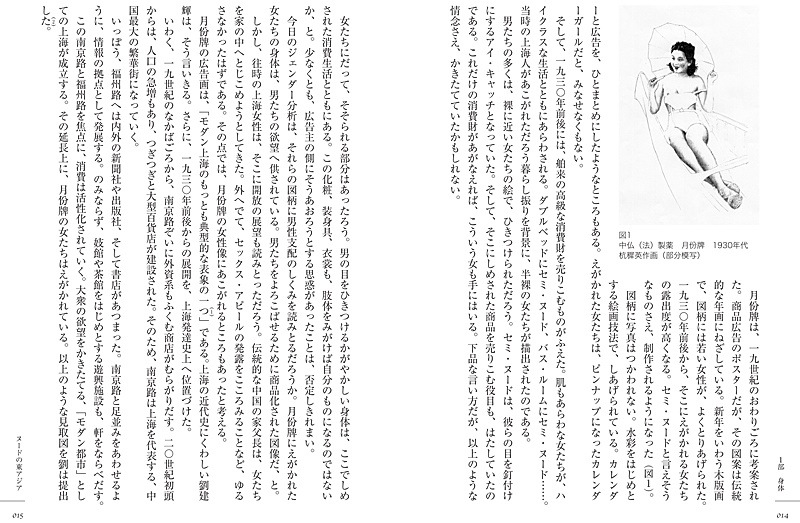 1部 身体
014
図1
中仏(法)製薬 月份牌 1930年代
杭穉英作画(部分模写)
月份牌は、一九世紀のおわりごろに考案され
た。商品広告のポスターだが、その図案は伝統
的な年画にねざしている。新年をいわう木版画
で、図柄には若い女性が、よくとりあげられた。
一九三〇年前後から、そこにえがかれる女たち
の露出度が高くなる。セミ・ヌードと言えそう
なものさえ、制作されるようになった(図1)。
図柄に写真はつかわれない。水彩をはじめと
する絵画技法で、しあげられている。カレンダ
ーと広告を、ひとまとめにしたようなところもある。えがかれた女たちは、ピンナップになったカレンダ
ーガールだと、みなせなくもない。
そして、一九三〇年前後には、舶来の高級な消費財を売りこむものがふえた。肌もあらわな女たちが、ハ
イクラスな生活とともにあらわされる。ダブルベッドにセミ・ヌード、バス・ルームにセミ・ヌード……。
当時の上海人があこがれただろう暮らし振りを背景に、半裸の女たちが描出されたのである。
男たちの多くは、裸に近い女たちの絵で、ひきつけられただろう。セミ・ヌードは、彼らの目を釘付け
にするアイ・キャッチとなっていた。そして、そこにしめされた商品を売りこむ役目も、はたしていたの
である。これだけの消費財があがなえれば、こういう女も手にはいる。下品な言い方だが、以上のような
情念さえ、かきたてていたかもしれない。
女たちにだって、そそられる部分はあったろう。男の目をひきつけるかがやかしい身体は、ここでしめ
された消費生活とともにある。この化粧、装身具、衣裳も、肢体をみがけば自分のものになるのではない
か、と。少なくとも、広告主の側にそうあおろうとする思惑があったことは、否定しきれまい。
今日のジェンダー分析は、それらの図柄に男性支配のしくみを読みとるだろうか。月份牌にえがかれた
女たちの身体は、男たちの欲望へ供されている。男たちをよろこばせるために商品化された図像だ、と。
しかし、往時の上海女性は、そこに開放の展望も読みとっただろう。伝統的な中国の家父長は、女たち
を家の中へとじこめようとしてきた。外へでて、セックス・アピールの発露をこころみることなど、ゆる
さなかったはずである。その点では、月份牌の女性像にあこがれるところもあったと考える。
月份牌の広告画は、「モダン上海のもっとも典型的な表象の一つ」である。上海の近代史にくわしい劉建
輝は、そう言いきる。さらに、一九三〇年前後からの展開を、上海発達史上へ位置づけた。
いわく、一九世紀のなかばごろから、南京路ぞいに外資系もふくむ商店がむらがりだす。二〇世紀初頭
からは、人口の急増もあり、つぎつぎと大型百貨店が建設された。そのため、南京路は上海を代表する、中
国最大の繁華街になっていく。
いっぽう、福州路へは内外の新聞社や出版社、そして書店があつまった。南京路と足並みをあわせるよ
うに、情報の拠点として発展する。のみならず、妓館や茶館をはじめとする遊興施設も、軒をならべだす。
この南京路と福州路を焦点に、消費は活性化されていく。大衆の欲望をかきたてる、「モダン都市」とし
ての上海が成立する。その延長上に、月份牌の女たちはえがかれている。以上のような見取図を劉は提出
した。
ヌードの東アジア
015